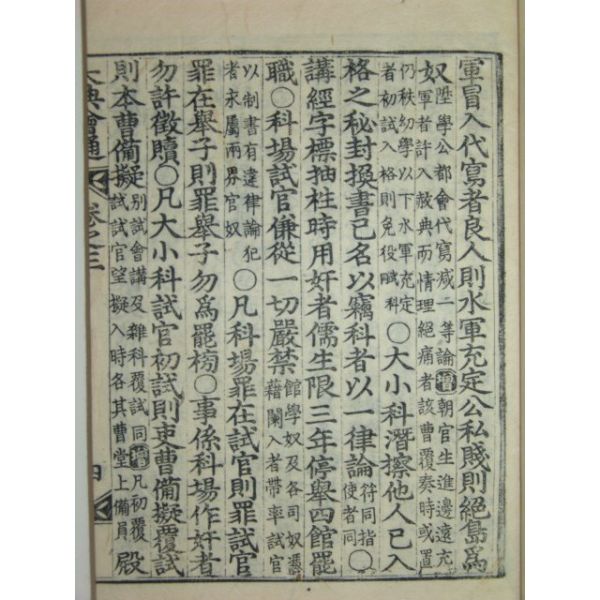 軍冒入代寫者良人則水軍充定公私賤則絕島爲
奴
陞學公都會代寫減二等論增朝官生進邊遠充
軍者許入赦典而情理絕痛者該曹覆奏時或置
仍秩幼學以下水軍充定
者初試入格則免役賦科
○大小科潛擦他人已入
格之秘封換書己名以竊科者以一律論
符同指
使者同
○
講經字標抽栍時用奸者儒生限三年停擧四館罷
職○科場試官傔從一切嚴禁
館學奴及各司奴憑
藉闌入者帶率試官
以制書有違律論犯
者永屬兩界官奴
○凡科場罪在試官則罪試官
罪在擧子則罪擧子勿爲罷榜○事係科場作奸者
勿許徵贖○凡大小科試官初試則吏曹備擬覆試
則本曹備擬
別試會講及雜科覆試同增凡初覆
試試官望擬入時各其曹堂上備員
殿
大典會通 卷之三 四